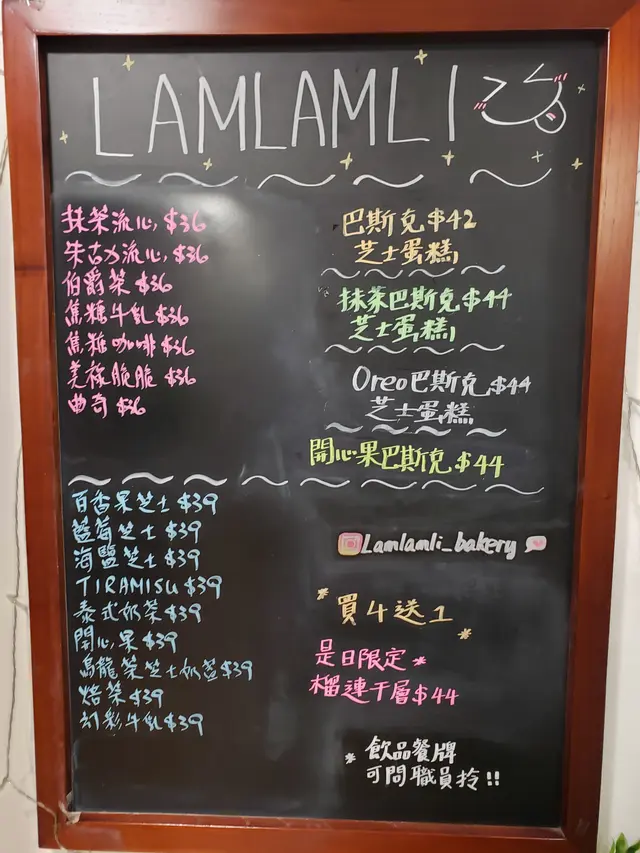 LAMLAMLI
抹茶流心 $36
朱古力流心 $36
伯爵茶 $36
焦糖牛乳 $36
焦糖咖啡 $36
美祿脆脆 $36
曲奇 $36
百香果芝士 $39
藍莓芝士 $39
海鹽芝士 $39
TIRAMISU $39
泰式奶茶 $39
開心果 $39
烏龍茶芝士奶蓋 $39
焙茶 $39
幻彩牛乳 $39
巴斯克 $42
芝士蛋糕
抹茶巴斯克 $44
芝士蛋糕
Oreo巴斯克 $44
芝士蛋糕
開心果巴斯克 $44
Lamlamli_bakery
*買4送1*
是日限定*
榴連千層 $44
*飲品餐牌
可問職員拎!!